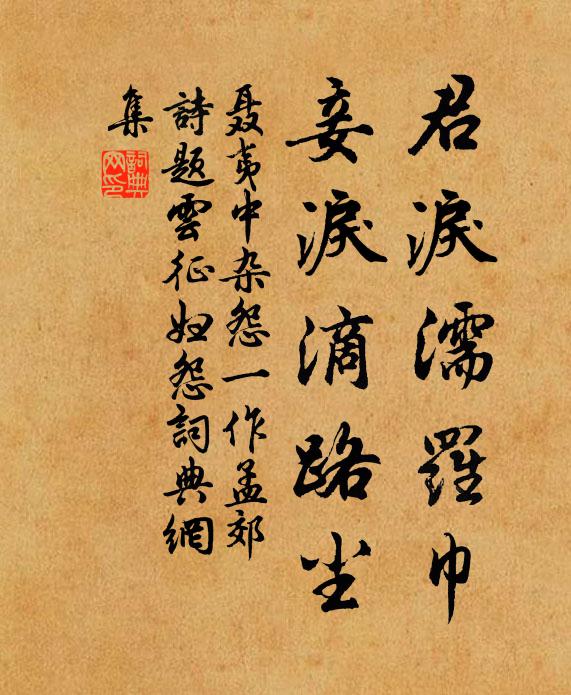 君淚濡羅巾
妾淚滴路尘
聂夷中杂怨一作孟郊
詩題雲征婦怨詞典網
集
詞典网印